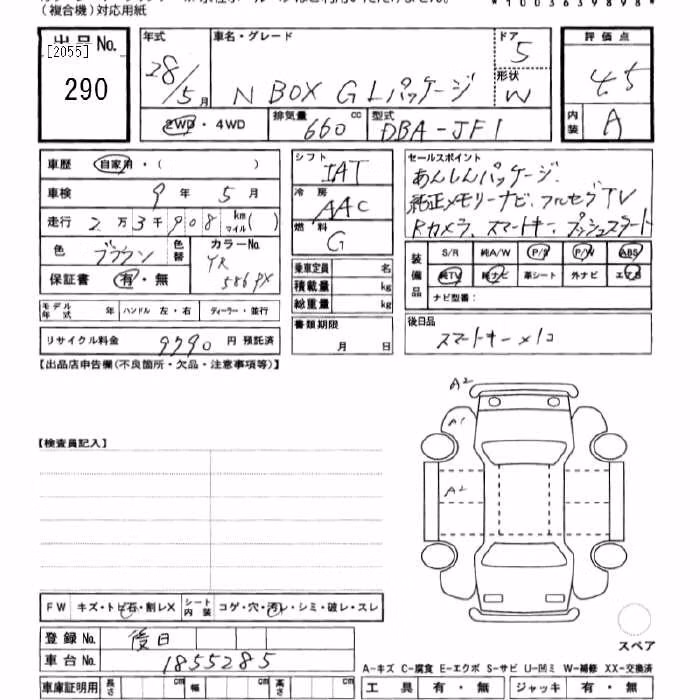 (複合機)対応用紙
*1003639898*
出品No.
[2055]
290
年式
28/5月
車名・グレード
N BOX G Lパッケージ
ドア
5
形状
W
評価点
4.5
内装
A
2WD・4WD
排気量
660cc
型式
DBA-JF1
車歴 自家用・( )
車検 9年 5月
走行 2万3千908km マイル( )
色 ブラウン 色替 カラーNo. YR586PX
保証書 有・無
モデル年式 年 ハンドル 左・右 ディーラー・並行
リサイクル料金 9790円 預託済
シフト
IAT
冷房
AAC
燃料
G
乗車定員 名
積載量 kg
総重量 kg
書類期限
月 日
セールスポイント
あんしんパッケージ.
純正メモリーナビ、フルセグTV
Rカメラ、スマートキー、プッシュスタート
装備品
S/R 純A/W P/S P/W ABS
純TV 純ナビ 革シート 外ナビ エアB
ナビ型番:
後日品
スマートキー×1コ
【出品店申告欄(不良箇所・欠品・注意事項等)】
【検査員記入】
A2
A1
A2
FW キズ・トビ石・割レX シート内装 コゲ・穴・汚レ・シミ・破レ・スレ
登録No. 後日
車台No. 1855285
車庫証明用 長さ cm 幅 cm 高さ cm
スペア
A-キズ C-腐食 E-エクボ S-サビ U-凹ミ W-補修 XX-交換済
工具 有・無 ジャッキ 有・無